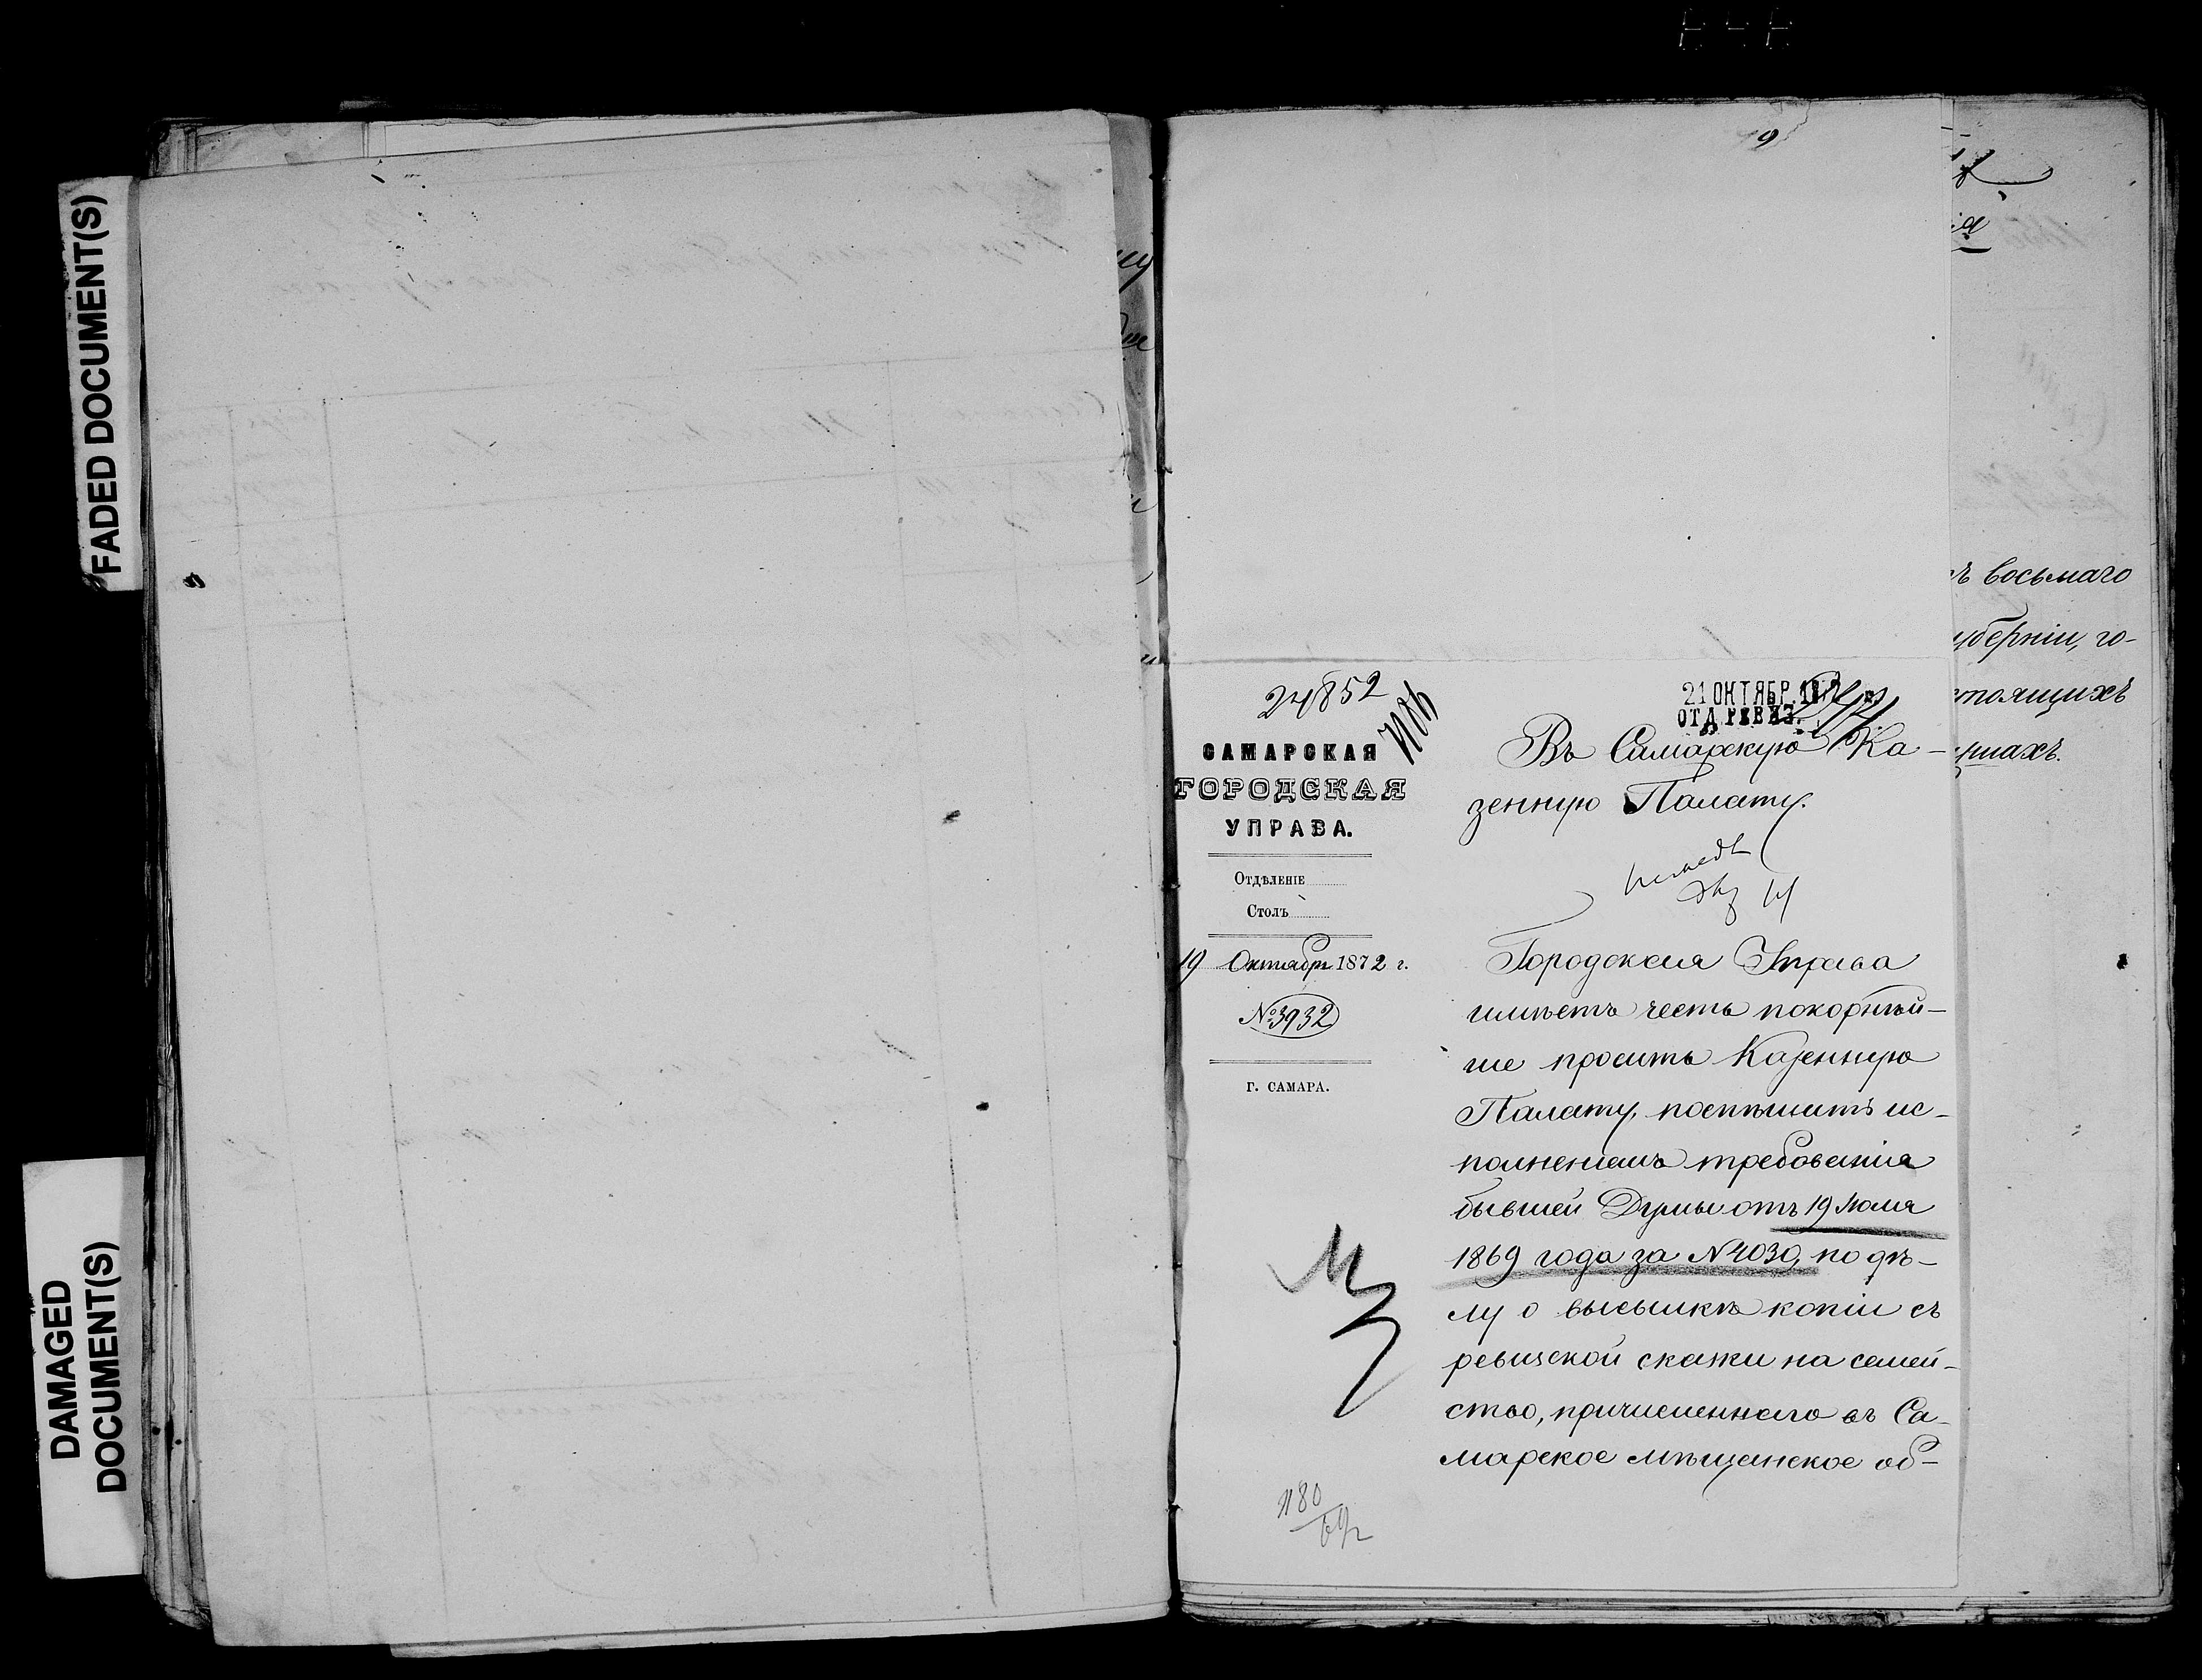 FADED DOCUMENT(S)
DAMAGED
DOCUMENT(S)
9
24852
21 ОКТЯБР. 187
ОТД. РЕВИЗ.
САМАРСКАЯ
ГОРОДСКАЯ
УПРАВА.
Отдѣленіе
Столъ
19 Октября 1872 г.
№ 3932
Г. САМАРА.
Въ Самарскую Ка-
зенную Палату.
Городская Управа
имѣетъ честь покорнѣй-
ше просить Казенную
Палату, поспѣшить ис-
полненіемъ требованія
бывшей Думы отъ 19 Іюля
1869 года за № 4030, по дѣ-
лу о высылкѣ копіи съ
ревизской сказки на семей-
ство, причисленнаго въ Са-
марское мѣщанское об-
1180
69 г
ъ восьмаго
уберніи, го-
стоящихъ